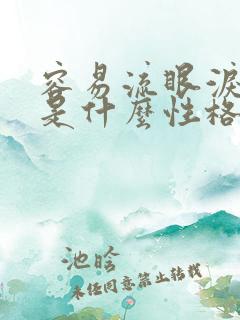 容易流眼淚
是什麼性格
池晗
未经同意禁止转载